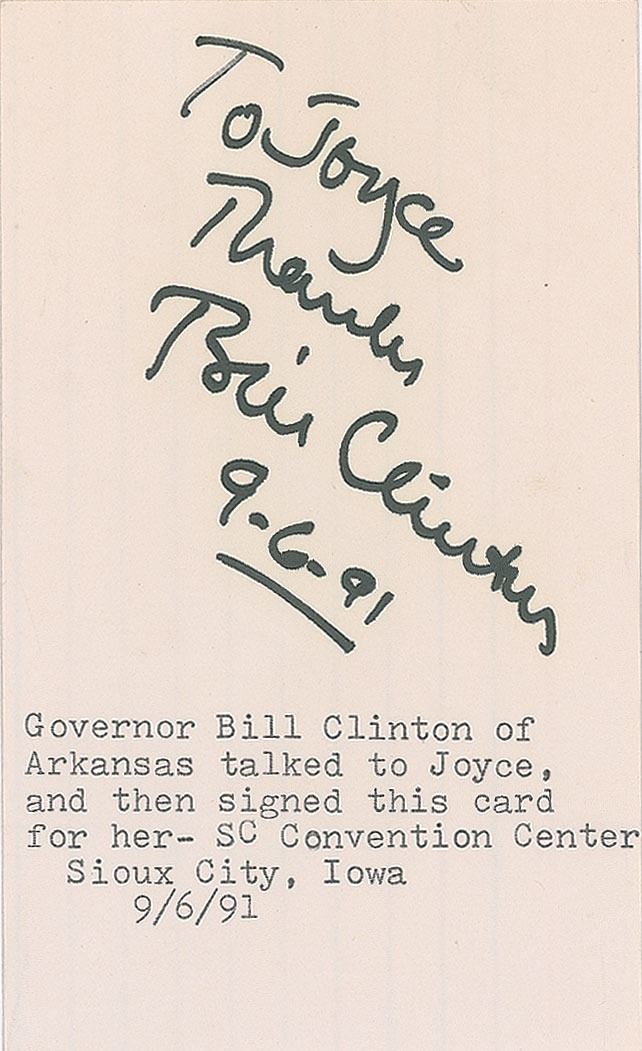 To Joyce
Thanks
Bill Clinton
9-6-91
Governor Bill Clinton of
Arkansas talked to Joyce,
and then signed this card
for her- SC Convention Center
Sioux City, Iowa
9/6/91